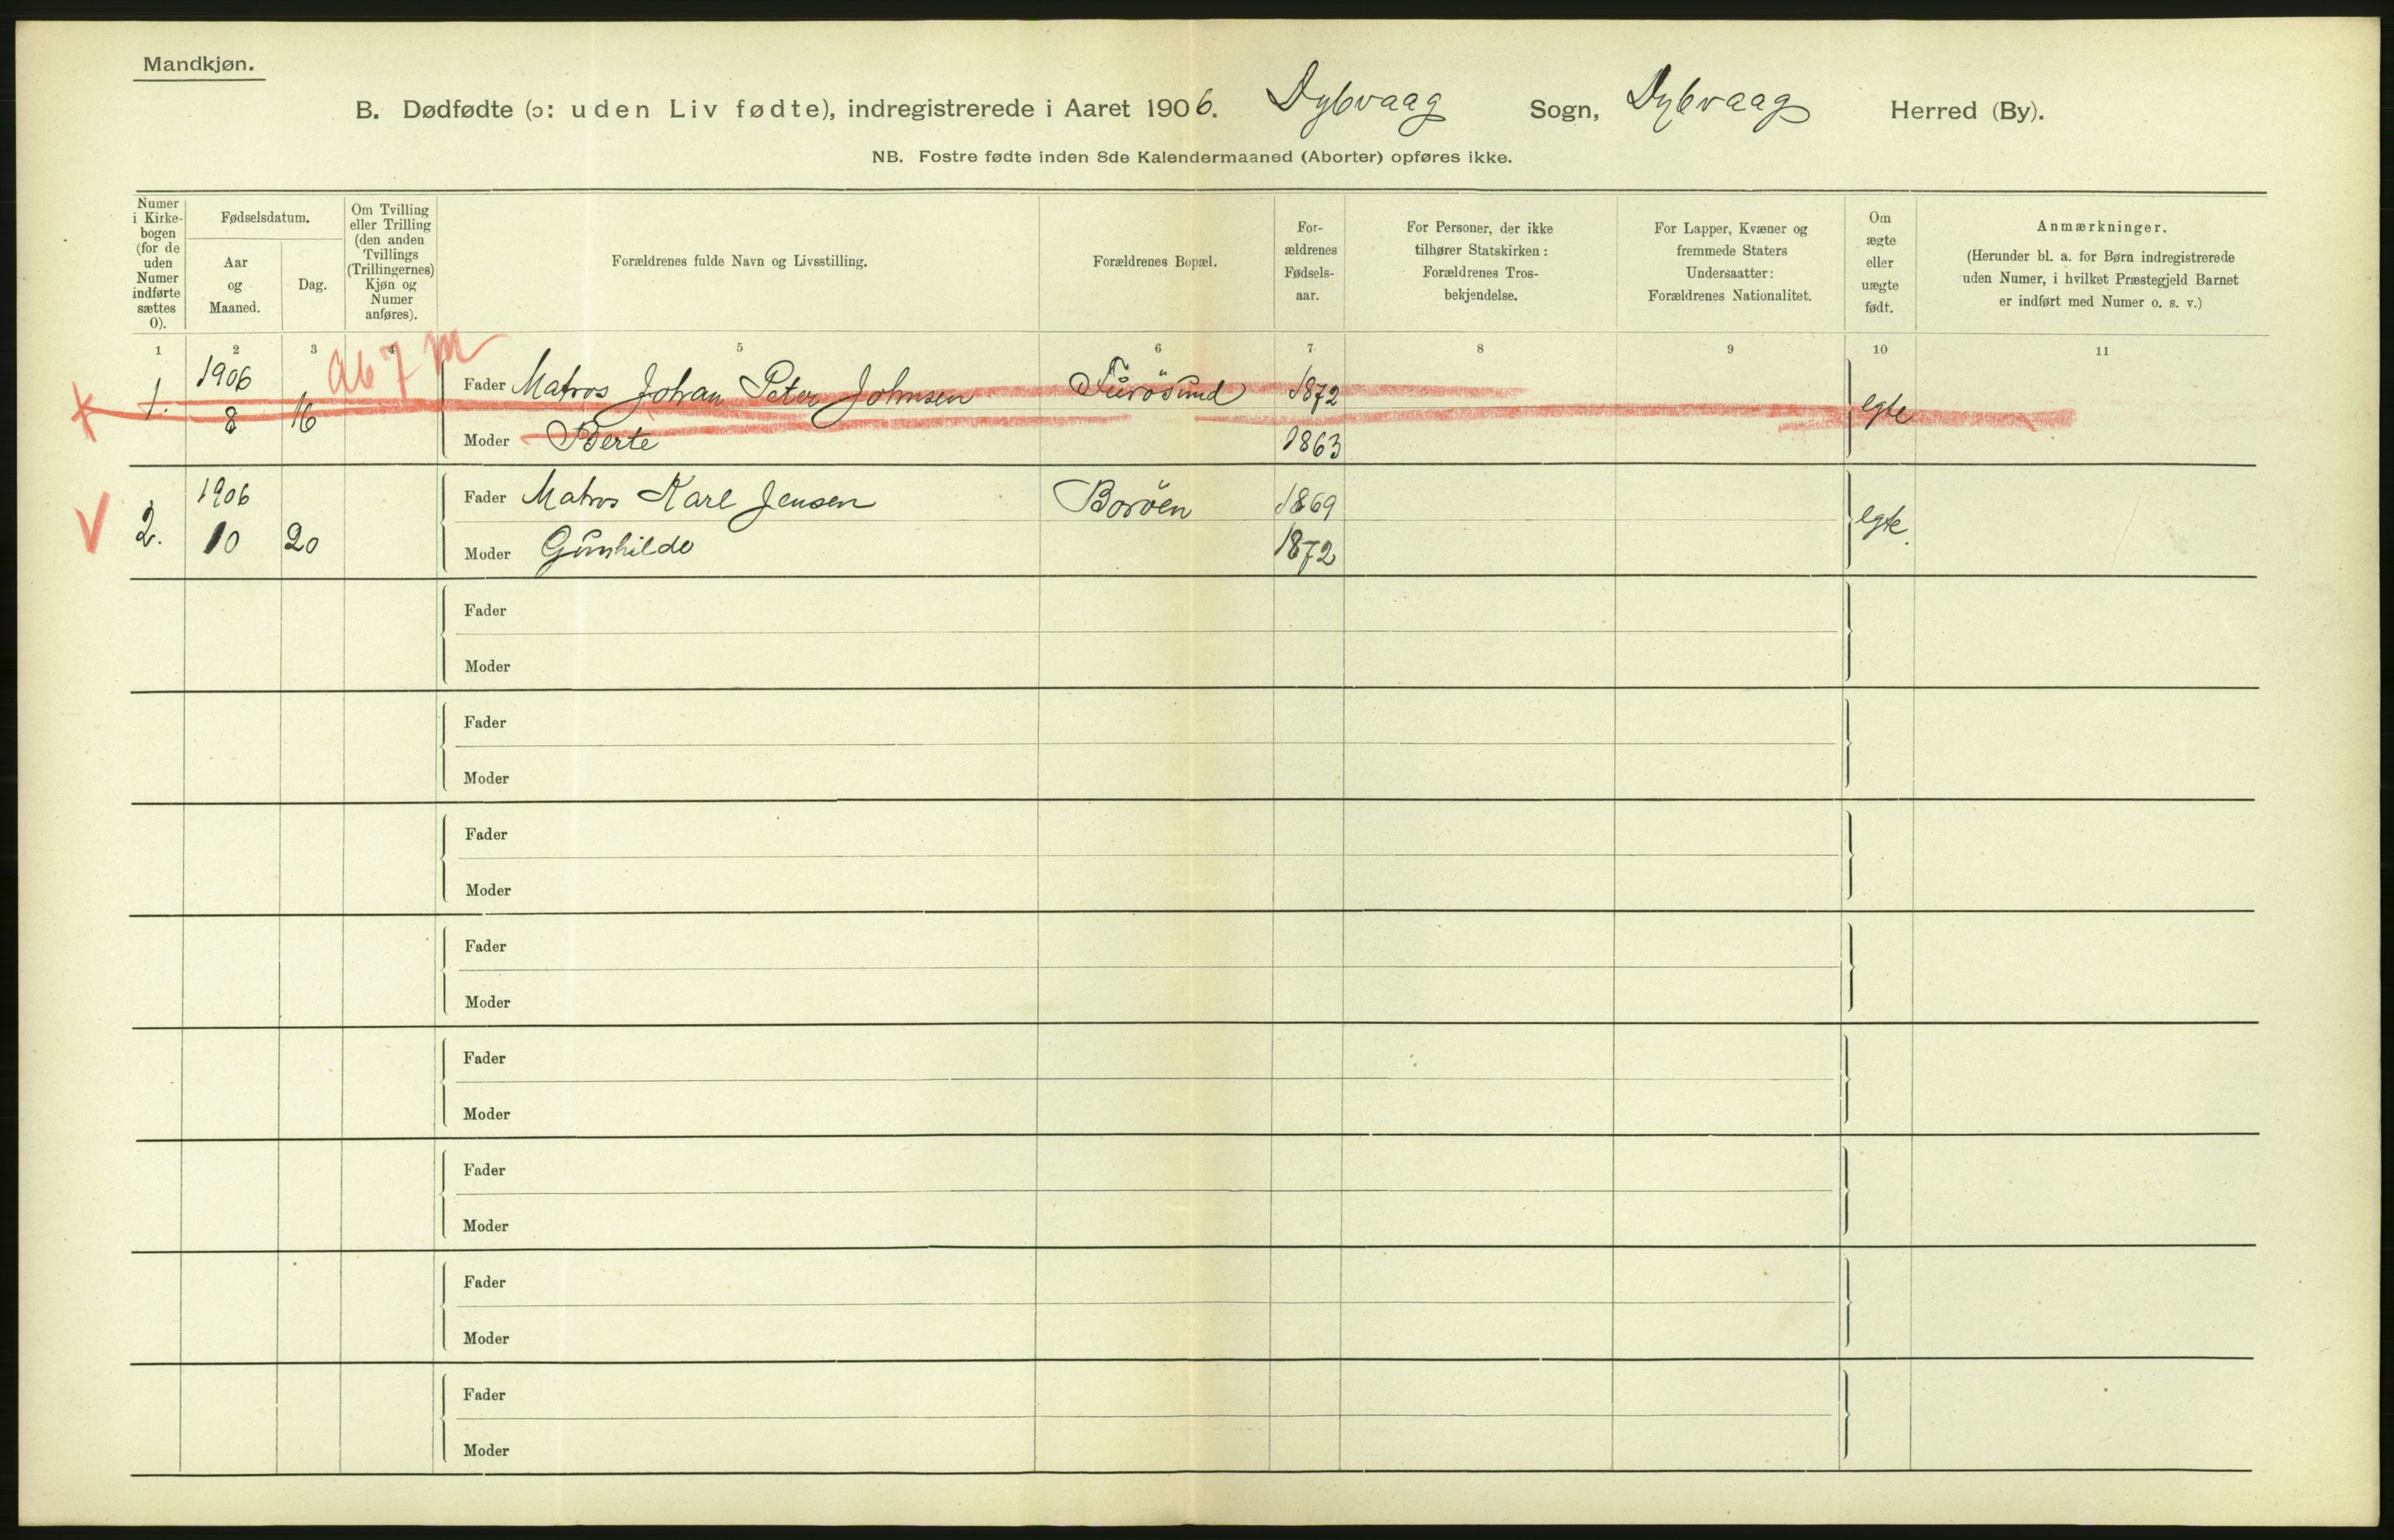 Mandkjøn.
B. Dødfødte (ɔ: uden Liv fødte), indregistrerede i Aaret 1906. Dybvaag Sogn, Dybvaag Herred (By).
NB. Fostre fødte inden 8de Kalendermaaned (Aborter) opføres ikke.
Numer i Kirke-bogen (for de uden Numer indførte sættes 0).
Fødselsdatum.
Aar og Maaned.
Dag.
Om Tvilling eller Trilling (den anden Tvillings (Trillingernes) Kjøn og Numer anføres).
Forældrenes fulde Navn og Livsstilling.
Forældrenes Bopæl.
For-ældrenes Fødsels-aar.
For Personer, der ikke tilhører Statskirken: Forældrenes Tros-bekjendelse.
For Lapper, Kvæner og fremmede Staters Undersaatter: Forældrenes Nationalitet.
Om ægte eller uægte født.
Anmærkninger.
(Herunder bl. a. for Børn indregistrerede uden Numer, i hvilket Præstegjeld Barnet er indført med Numer o. s. v.)
1 2 3 4 5 6 7 8 9 10 11
ab 7 m
1. 1906 8 16 Fader Matros Johan Peter Johnsen Furøsund 1872 egte
Moder Berte 1863
V 2. 1906 10 20 Fader Matros Karl Jensen Borøen 1869 egte.
Moder Gunhilde 1872
Fader
Moder
Fader
Moder
Fader
Moder
Fader
Moder
Fader
Moder
Fader
Moder
Fader
Moder
Fader
Moder